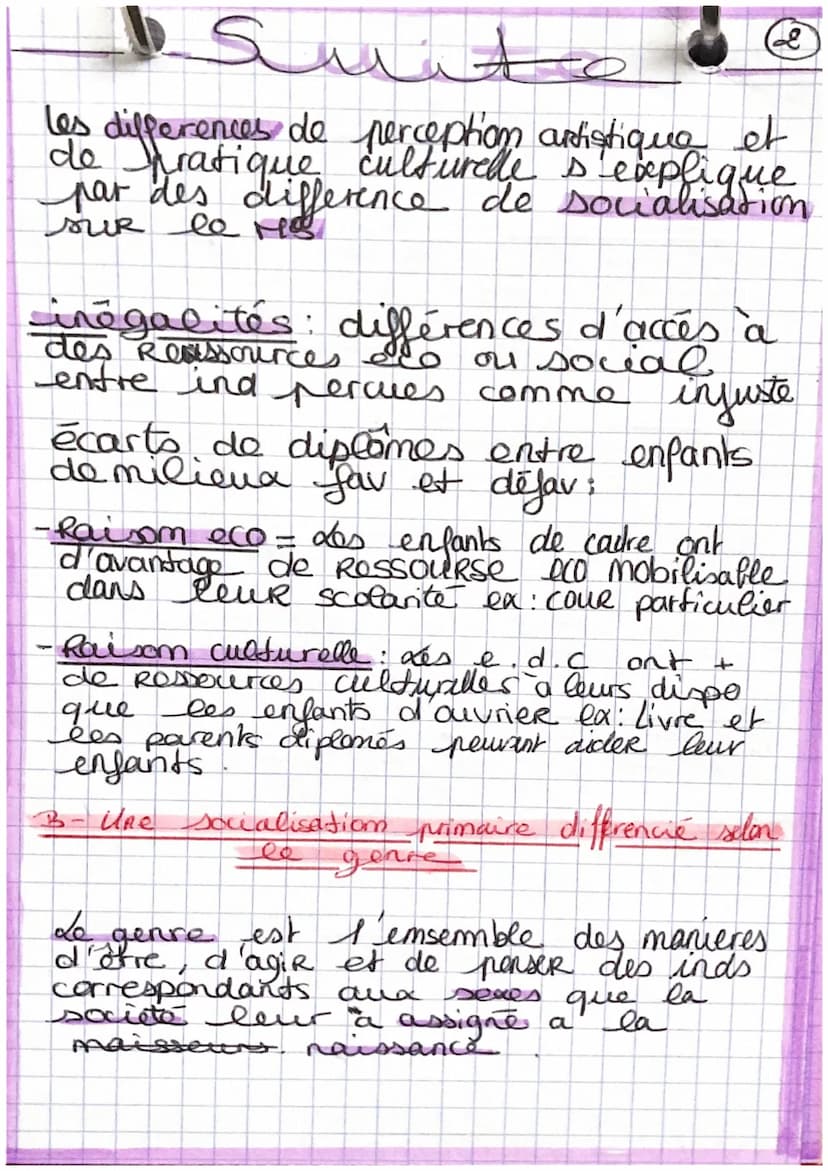 Suite
2
les differences de perception artistique et
de pratique culturelle s'explique
par des difference de socialisation
sur le MS
inégalités : différences d'accès à
des Ressources eco ou social
entre ind percues comme injuste
écarts de diplômes entre enfants
de milieux fav et défav :
- Raison eco = des enfants de cadre ont
d'avantage de RESSOURSE eco mobilisable
dans leur scolarité ex : cour particulier
- Raison culturelle : les e.d.c ont +
de Ressources culturelles à leurs dispo
que les enfants d'ouvrier ex : livre et
les parents diplomés peuvent aider leur
enfants.
B- Une socialisation primaire diffrencié selon
le genre
Le genre est l'emsemble des manieres
d'être, d'agir et de penser des inds
correspondants aux sexes que la
société leur à assigné a la
naissance.